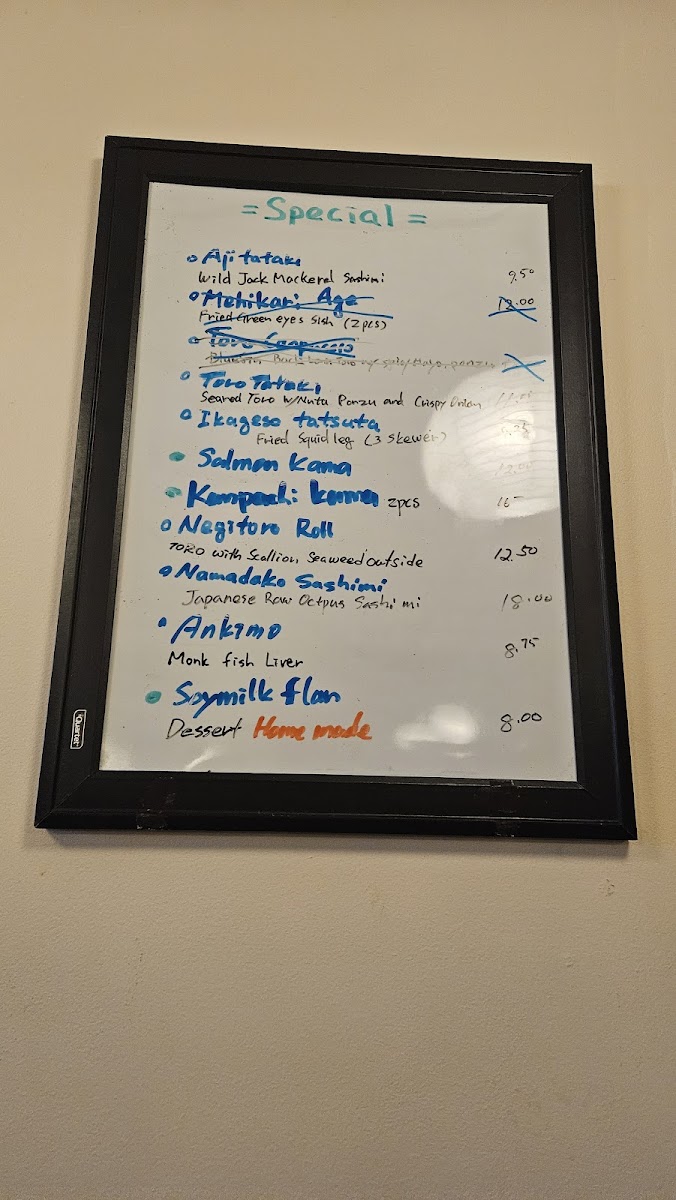 = Special =
Aji tataki
Wild Jack Mackerel Sashimi 9.50
Mehikari Age 12.00
Fried Green eyes Sish (2pcs)
Toro Carpaccio
Toro Tataki
Seared Toro w/Nuta Ponzu and Crispy Onion
Ikageso tatsuta
Fried Squid leg (3 skewer)
Salmon Kama 12.00
Kampachi kama 2pcs 16-
Negitoro Roll
TORO with Scallion, Seaweed outside 12.50
Namadako Sashimi
Japanese Raw Octpus Sashimi 18.00
Ankimo
Monk fish Liver 8.75
Soymilk flan
Dessert Home made 8.00
Quartet